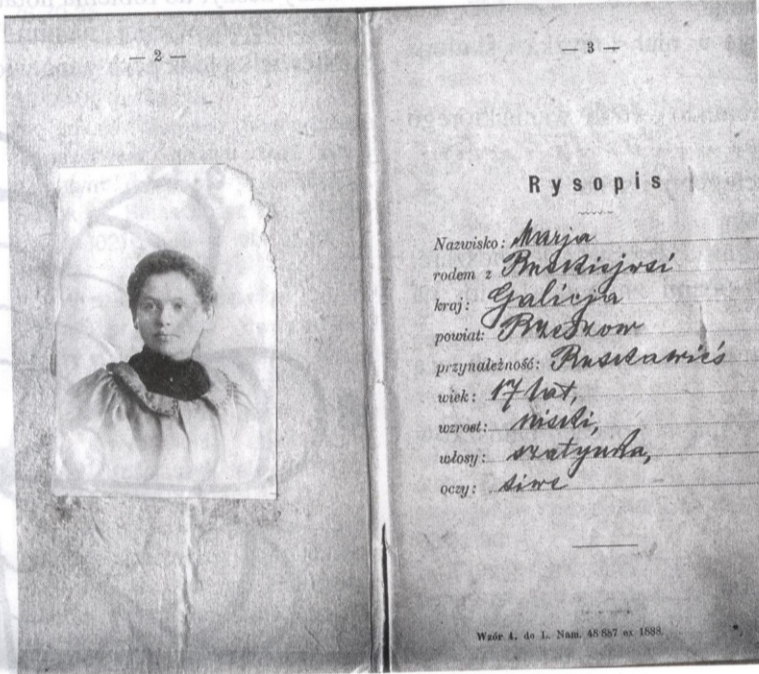 — 2 —
— 3 —
Rysopis
Nazwisko: Marja
rodem z Ruskiejwsi
kraj: Galicja
powiat: Rzeszow
przynależność: Ruskawieś
wiek: 17 lat,
wzrost: niski,
włosy: szatynka,
oczy: siwe
Wzór 4. do L. Nam. 48887 ex 1888.